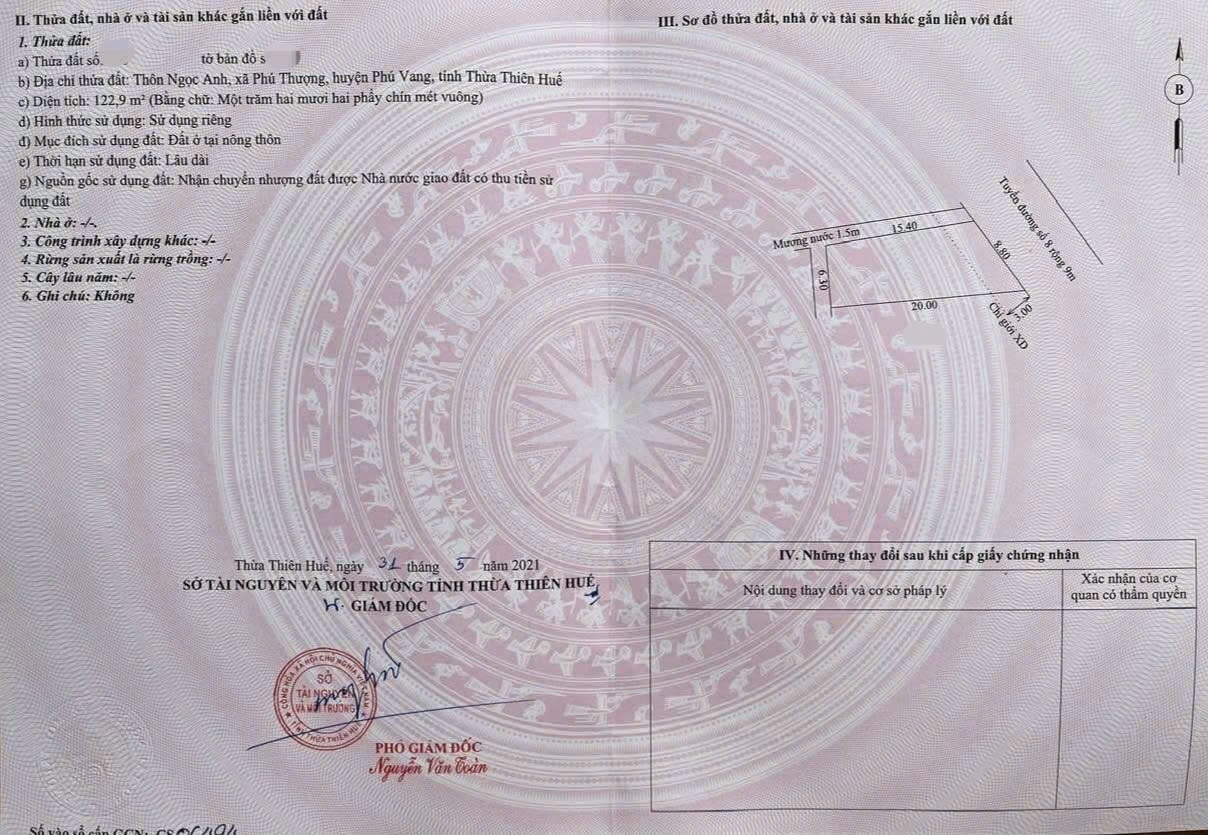 II. Thửa đất, nhà ở và tài sản khác gắn liền với đất
1. Thửa đất:
a) Thửa đất số.
tờ bản đồ s
b) Địa chỉ thửa đất: Thôn Ngọc Anh, xã Phú Thượng, huyện Phú Vang, tỉnh Thừa Thiên Huế
c) Diện tích: 122,9 m² (Bằng chữ: Một trăm hai mươi hai phẩy chín mét vuông)
d) Hình thức sử dụng: Sử dụng riêng
đ) Mục đích sử dụng đất: Đất ở tại nông thôn
e) Thời hạn sử dụng đất: Lâu dài
g) Nguồn gốc sử dụng đất: Nhận chuyển nhượng đất được Nhà nước giao đất có thu tiền sử
dụng đất
2. Nhà ở: -/-.
3. Công trình xây dựng khác: -/-
4. Rừng sản xuất là rừng trồng: -/-
5. Cây lâu năm: -/-
6. Ghi chú: Không
Thừa Thiên Huế, ngày 31 tháng 5 năm 2021
SỞ TÀI NGUYÊN VÀ MÔI TRƯỜNG TỈNH THỪA THIÊN HUẾ
GIÁM ĐỐC
CỘNG HÒA XÃ HỘI CHỦ NGHĨA VIỆT NAM
SỞ
TÀI NGUYÊN
VÀ MÔI TRƯỜNG
TỈNH THỪA THIÊN HUẾ
PHÓ GIÁM ĐỐC
Nguyễn Văn Toàn
Số vào sổ cấp GCN:
III. Sơ đồ thửa đất, nhà ở và tài sản khác gắn liền với đất
B
Tuyến đường số 8 rộng 9m
Mương nước 1.5m
15.40
8.80
6.30
20.00
3.00
Chỉ giới XD
IV. Những thay đổi sau khi cấp giấy chứng nhận
Nội dung thay đổi và cơ sở pháp lý
Xác nhận của cơ
quan có thẩm quyền